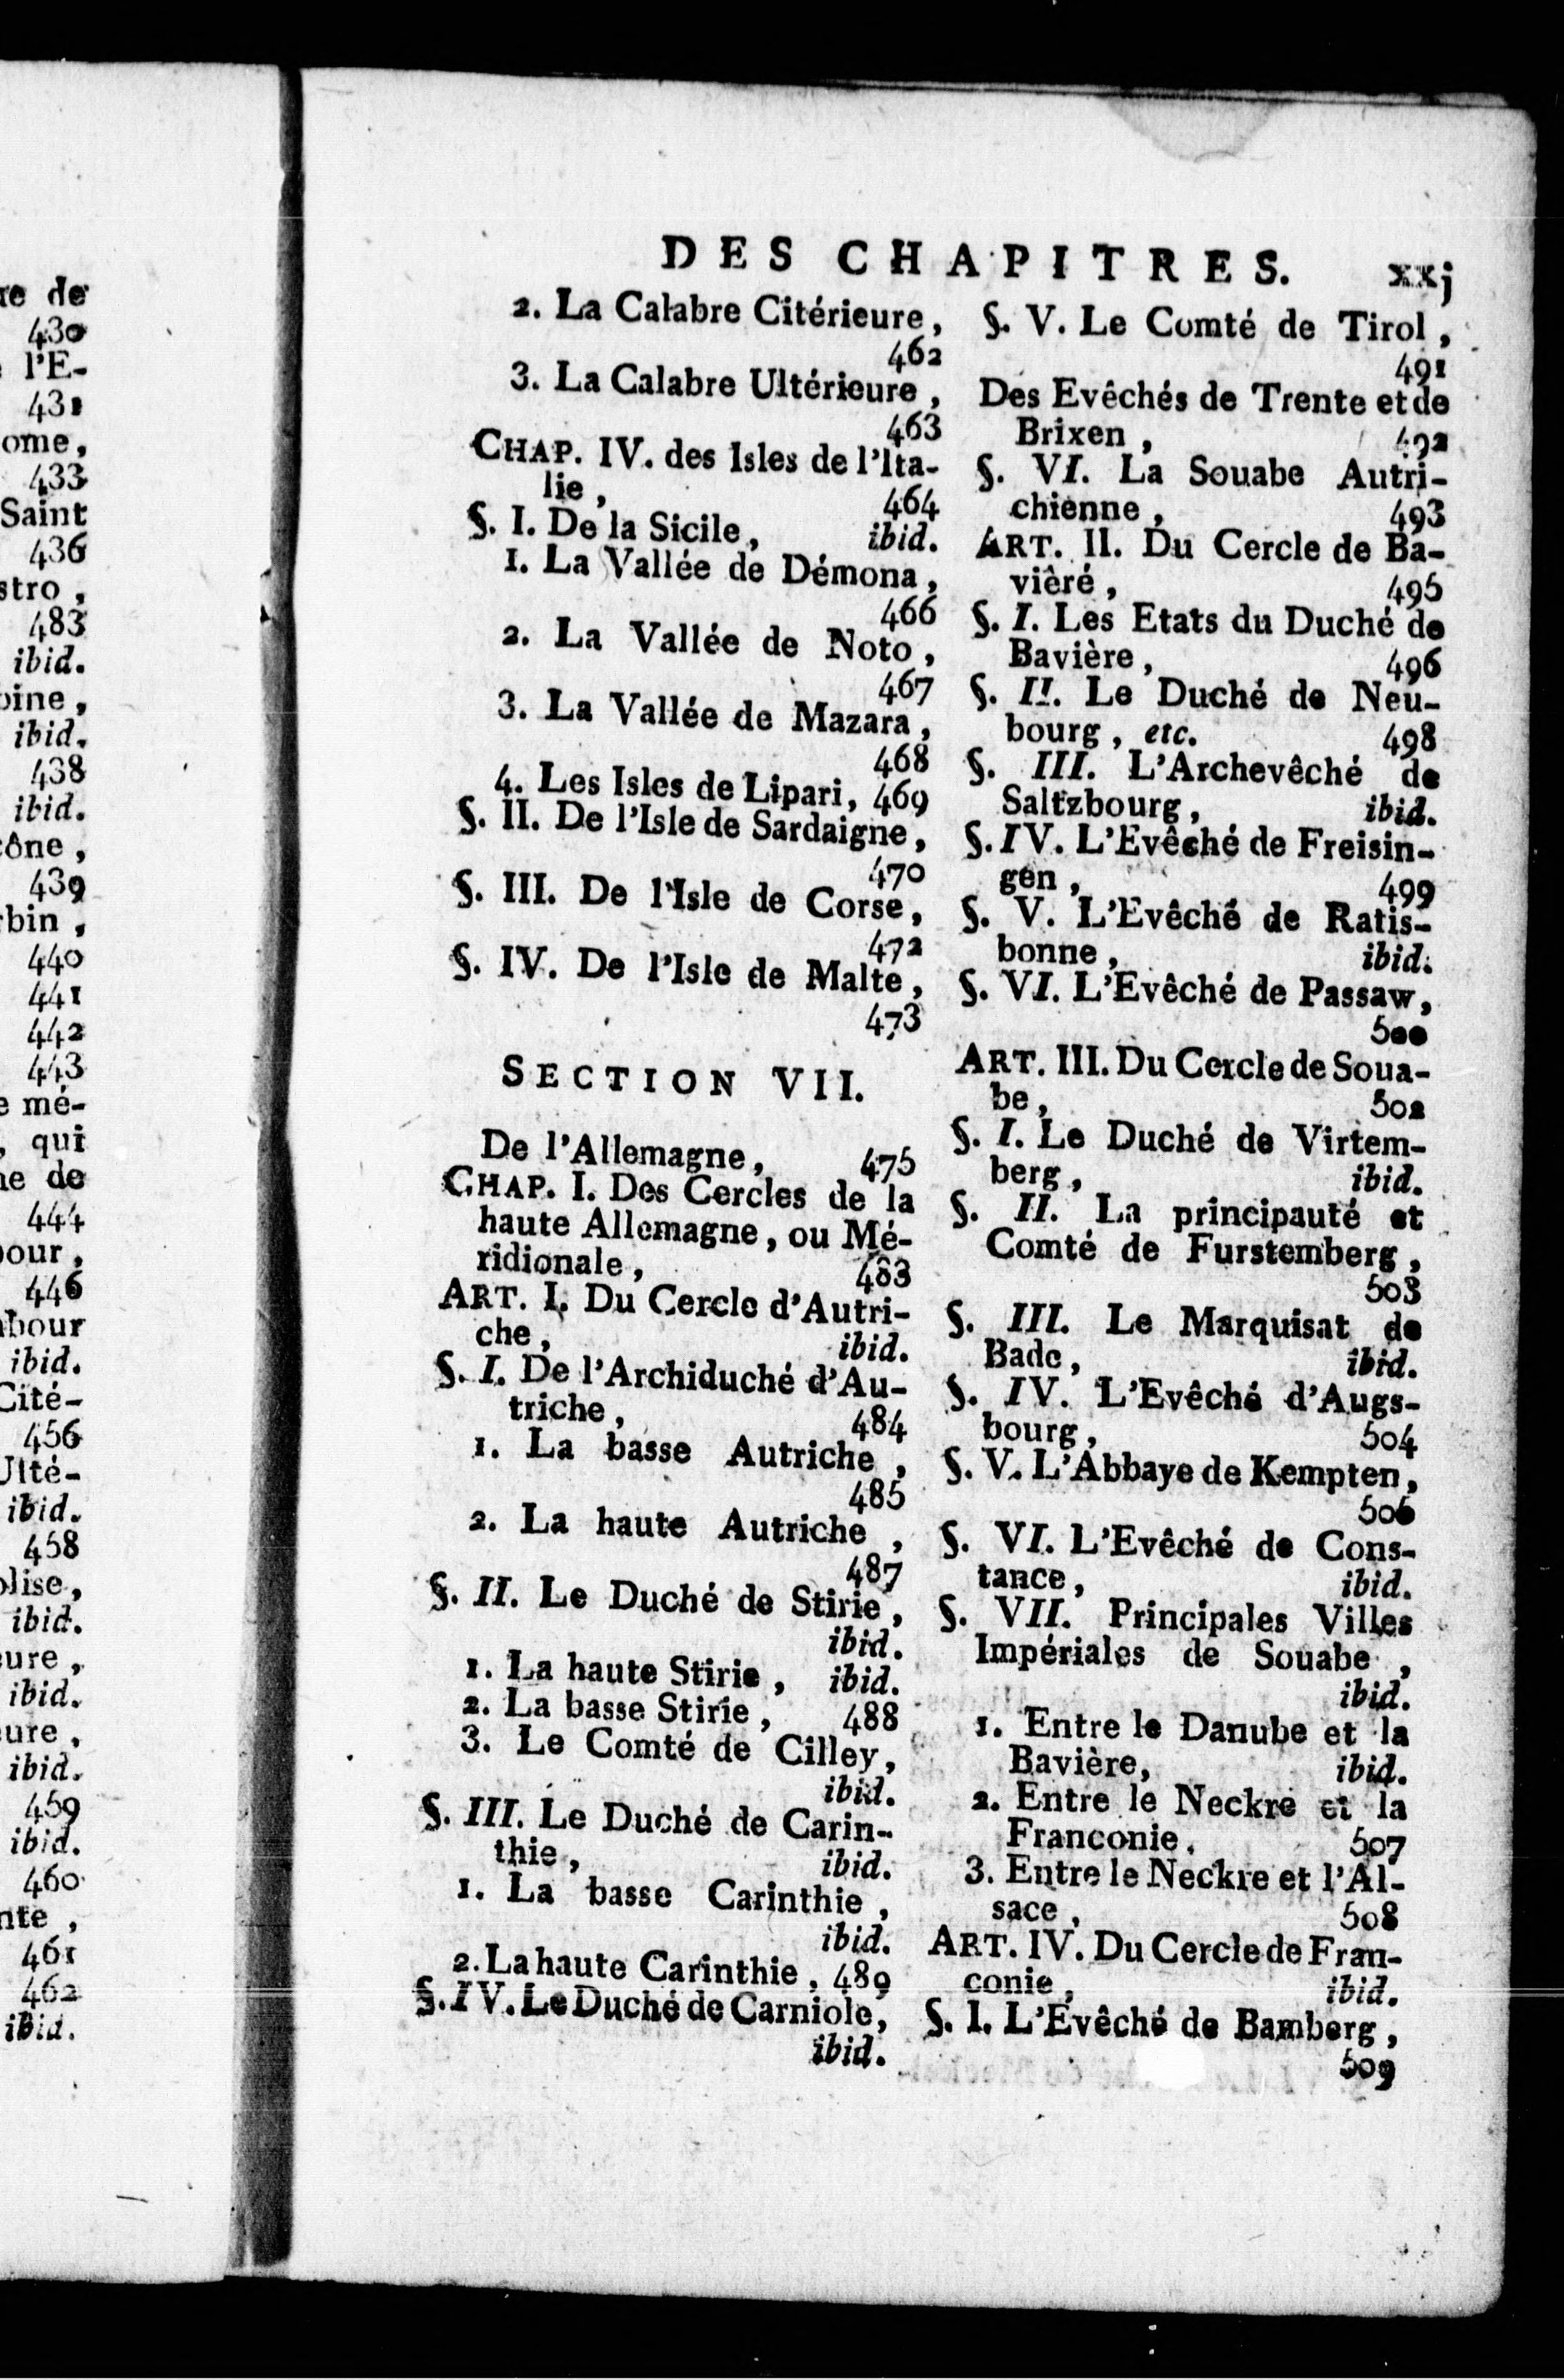 re de
430
l'E-
431
ome,
433
Saint
436
stro,
483
ibid.
pine,
ibid.
438
ibid.
cône,
439
rbin,
440
441
442
443
e mé-
, qui
ne de
444
bour,
446
bour
ibid.
Cité-
456
Ulté-
ibid.
458
olise,
ibid.
eure,
ibid.
eure,
ibid.
459
ibid.
460
nte,
461
462
ibid.
DES CHAPITRES. xxj
2. La Calabre Citérieure,
462
3. La Calabre Ultérieure,
463
CHAP. IV. des Isles de l'Ita-
lie, 464
§. I. De la Sicile, ibid.
1. La Vallée de Démona,
466
2. La Vallée de Noto,
467
3. La Vallée de Mazara,
468
4. Les Isles de Lipari, 469
§. II. De l'Isle de Sardaigne,
470
§. III. De l'Isle de Corse,
472
§. IV. De l'Isle de Malte,
473
SECTION VII.
De l'Allemagne, 475
CHAP. I. Des Cercles de la
haute Allemagne, ou Mé-
ridionale, 483
ART. I. Du Cercle d'Autri-
che, ibid.
§. I. De l'Archiduché d'Au-
triche, 484
1. La basse Autriche,
485
2. La haute Autriche,
487
§. II. Le Duché de Stirie,
ibid.
1. La haute Stirie, ibid.
2. La basse Stirie, 488
3. Le Comté de Cilley,
ibid.
§. III. Le Duché de Carin-
thie, ibid.
1. La basse Carinthie,
ibid.
2. La haute Carinthie, 489
§. IV. Le Duché de Carniole,
ibid.
§. V. Le Comté de Tirol,
491
Des Evêchés de Trente et de
Brixen, 492
§. VI. La Souabe Autri-
chienne, 493
ART. II. Du Cercle de Ba-
viêré, 495
§. I. Les Etats du Duché de
Bavière, 496
§. II. Le Duché de Neu-
bourg, etc. 498
§. III. L'Archevêché de
Saltzbourg, ibid.
§. IV. L'Evêché de Freisin-
gen, 499
§. V. L'Evêché de Ratis-
bonne, ibid.
§. VI. L'Evêché de Passaw,
500
ART. III. Du Cercle de Soua-
be, 502
§. I. Le Duché de Virtem-
berg, ibid.
§. II. La principauté et
Comté de Furstemberg,
503
§. III. Le Marquisat de
Bade, ibid.
§. IV. L'Evêché d'Augs-
bourg, 504
§. V. L'Abbaye de Kempten,
506
§. VI. L'Evêché de Cons-
tance, ibid.
§. VII. Principales Villes
Impériales de Souabe,
ibid.
1. Entre le Danube et la
Bavière, ibid.
2. Entre le Neckre et la
Franconie. 507
3. Entre le Neckre et l'Al-
sace, 508
ART. IV. Du Cercle de Fran-
conie, ibid.
§. I. L'Evêché de Bamberg,
509